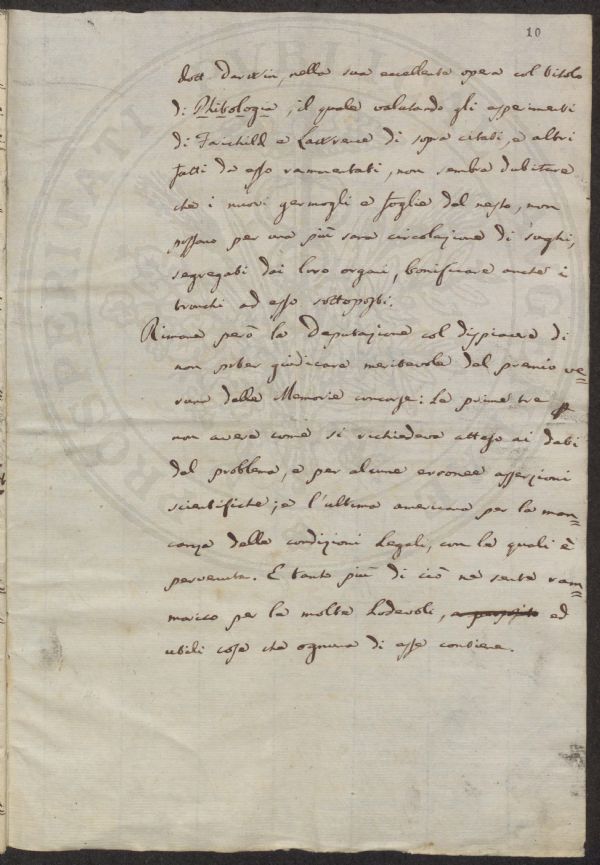 10
dott. Darwin, nella sua eccellente opera col titolo
di Phitologia, il quale valutando gli esperimenti
di Fairchild e Lawrence di sopra citati, e altri
fatti da esso rammentati, non sembra dubitare
che i nuovi germogli e foglie del nesto, non
possano per una più sana circolazione di sughi,
segregati dai loro organi, bonificare anche i
tronchi ad esso sottoposti.
Rimane però la Deputazione col dispiacere di
non poter giudicare meritevole del premio ve=
runa delle Memorie concorse: La prime tre
non avere come si richiedeva atteso ai dati
del problema, e per alcune erronee asserzioni
scientifiche; e l'ultima americana per la man=
canza delle condizioni Legali, con le quali è
pervenuta. E tanto più di ciò ne sente ram=
marico per le molte Lodevoli, ed
utili cose che ognuna di esse contiene.
PROSPERITATI PUBLI